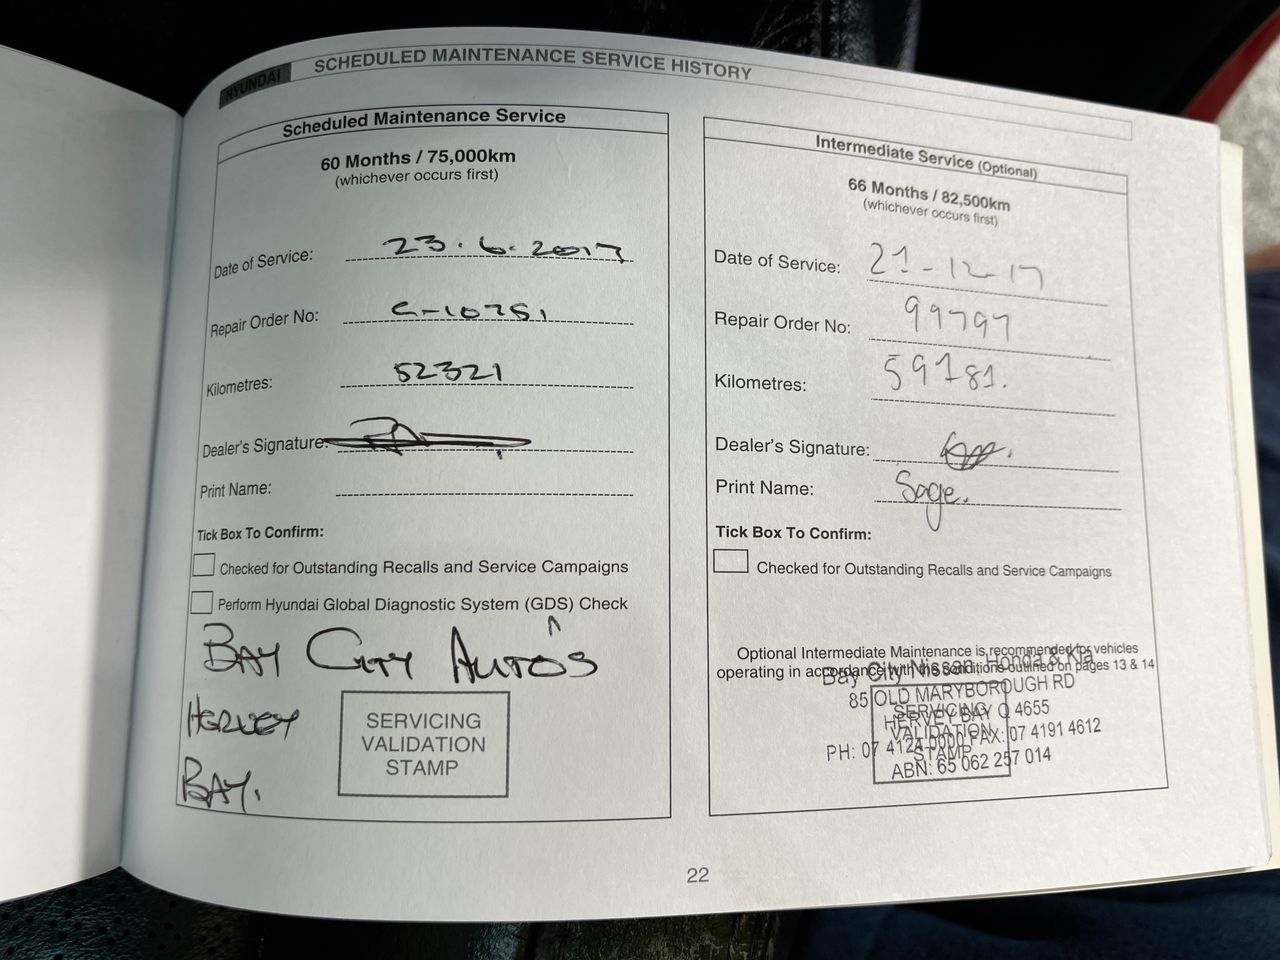 HYUNDAI
SCHEDULED MAINTENANCE SERVICE HISTORY
Scheduled Maintenance Service
60 Months / 75,000km
(whichever occurs first)
Date of Service: 23.6.2017
Repair Order No: G-10751
Kilometres: 52321
Dealer's Signature:
Print Name:
Tick Box To Confirm:
Checked for Outstanding Recalls and Service Campaigns
Perform Hyundai Global Diagnostic System (GDS) Check
BAY CITY AUTO'S
HERVEY
BAY.
SERVICING
VALIDATION
STAMP
Intermediate Service (Optional)
66 Months / 82,500km
(whichever occurs first)
Date of Service: 21-12-17
Repair Order No: 99797
Kilometres: 59781.
Dealer's Signature:
Print Name: Sage.
Tick Box To Confirm:
Checked for Outstanding Recalls and Service Campaigns
Optional Intermediate Maintenance is recommended for vehicles
operating in accordance with the conditions outlined on pages 13 & 14
Bay City Nissan, Honda & Kia
85 OLD MARYBOROUGH RD
HERVEY BAY Q 4655
PH: 07 4124 0000 FAX: 07 4191 4612
ABN: 65 062 257 014
SERVICING
VALIDATION
STAMP
22